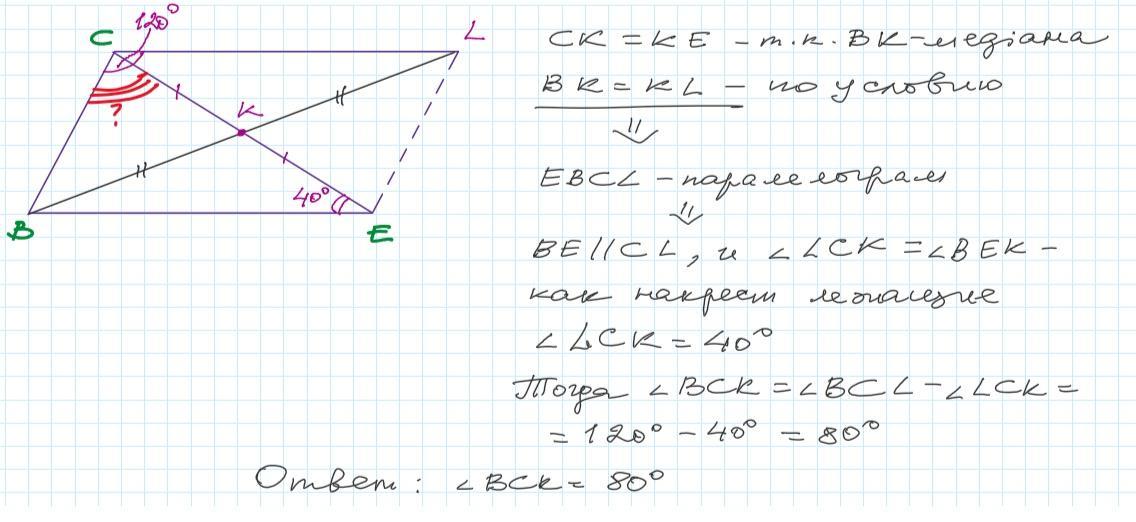 120°
C
L
?
K
40°
B
E
CK = KE - т.к. BK-медіана
BK = KL - по условию
⇓
EBCL - паралелограм
⇓
BE//CL, и ∠LCK = ∠BEK -
как накрест лежащие
∠LCK = 40°
Тогда ∠BCK = ∠BCL - ∠LCK =
= 120° - 40° = 80°
Ответ: ∠BCK = 80°